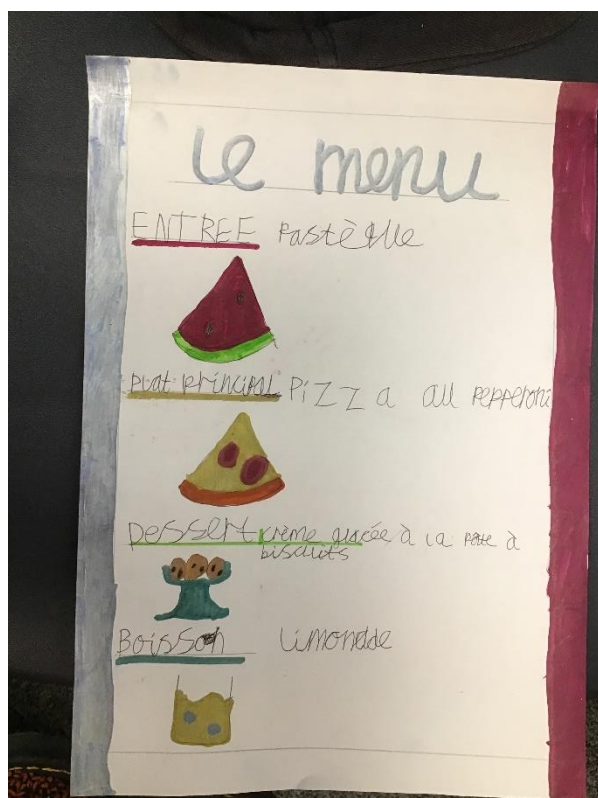 Le menu
ENTREE Pastèque
Plat principal Pizza au Pepperoni
Dessert crème glacée à la Pâte à
biscuits
Boisson Limonade